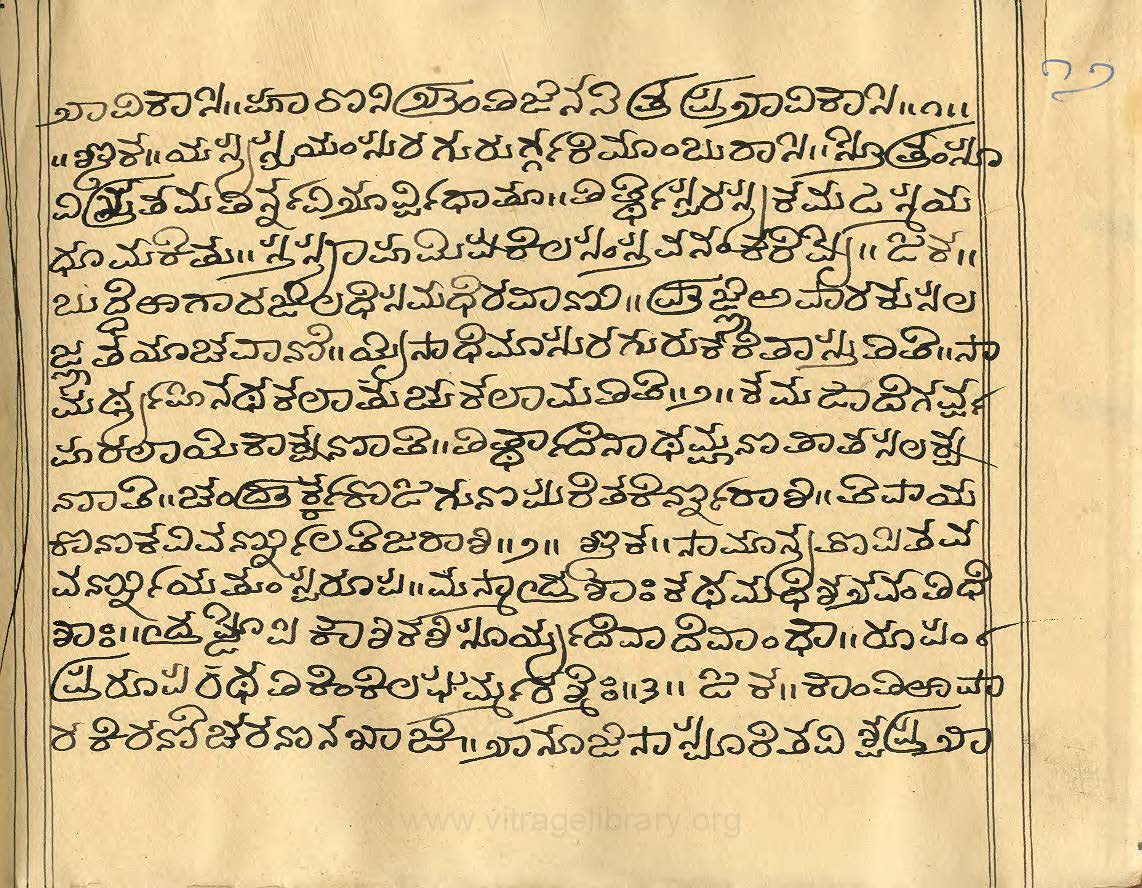 ಭಾವಿಕಾಸಿ॥ಹಾರೊನಿಭ್ರಾಂತಿಜಿನನೆತ್ರಪ್ರಭಾವಿಕಾಸಿ॥೧॥
॥ಶ್ಲೊಕ॥ಯಸ್ಯಸ್ವಯಂಸುರಗುರುರ್ಗ್ಗರಿಮಾಂಬುರಾಸಿ॥ಸ್ತೊತ್ರಂಸೂ
ವಿಸ್ತ್ರುತಮತಿರ್ನ್ನವಿಭೂರ್ವ್ವಿಧಾತೂ॥ತಿರ್ತ್ಥೆಸ್ವರಸ್ಯಕಮಟಸ್ಮಯ
ಧೂಮಕೆತು॥ಸ್ತಸ್ಯಾಹಮೆಷಕಿಲಸಂಸ್ತವನಂಕರಿಷ್ಯೆ॥ಜಕ॥
ಬುದ್ಧಿಅಗಾದಜಲಧಿಸಮಧಿರವಾಣಿ॥ಪ್ರಾಜ್ಞಿಅಪಾರಕುಸಲ
ಜ್ಞತೆಯಾಚವಾಣಿ॥ಯೈಸಾಧಿಮಾಸುರಗುರುಕರಿತಾಸ್ತುತಿತೆ॥ಸಾ
ಮರ್ಥ್ಯಹಿನಥಕಲಾತುಚುಕಲಾಮತಿತೆ॥೨॥ಕಮಟಾದಿಗರ್ವ್ವ
ಹರಲಾಯಿಕಾಕ್ಷಣಾತಿ॥ತಿರ್ತ್ಥಾದಿನಾಥಮ್ಹಣತಾತಸಲಕ್ಷ
ಣಾತಿ॥ಚಂದ್ರಾರ್ಕ್ಕಕೊಟಿಗುಣಪುರಿತಕಿರ್ನ್ನರಾಶಿ॥ತಿಪಾಯ
ಕಾಣಕವಿವರ್ನ್ನಿಲತೆಜರಾಶಿ॥೨॥ ಶ್ಲೊಕ॥ಸಾಮಾನ್ಯತೊಪಿತವ
ವರ್ನ್ನಯತುಂಸ್ವರೂಪ॥ಮಸ್ಮಾದ್ರಶಾಃಕಥಮಧಿಶಭವಂತಿಧಿ
ಶಾಃ॥ದ್ರಷ್ಟೊಪಿಕೌಶಿಕಶಿಸೂರ್ಯ್ಯದಿವಾದಿವಾಂಧಾ॥ರೂಪಂ
ಪ್ರರೂಪಯತಿಕಿಂಕಿಲಘರ್ಮ್ಮರಶ್ಮೆಃ॥೩॥ ಜಕ॥ಕಾಂತಿಅಪಾ
ರಕಿರಣೆಚರಣನಖಾಜೆ॥ಭಾನೂಜಿಸಾಸ್ಪೂರಿತವಿಶ್ವಪ್ರಭಾ
www.vitragelibrary.org